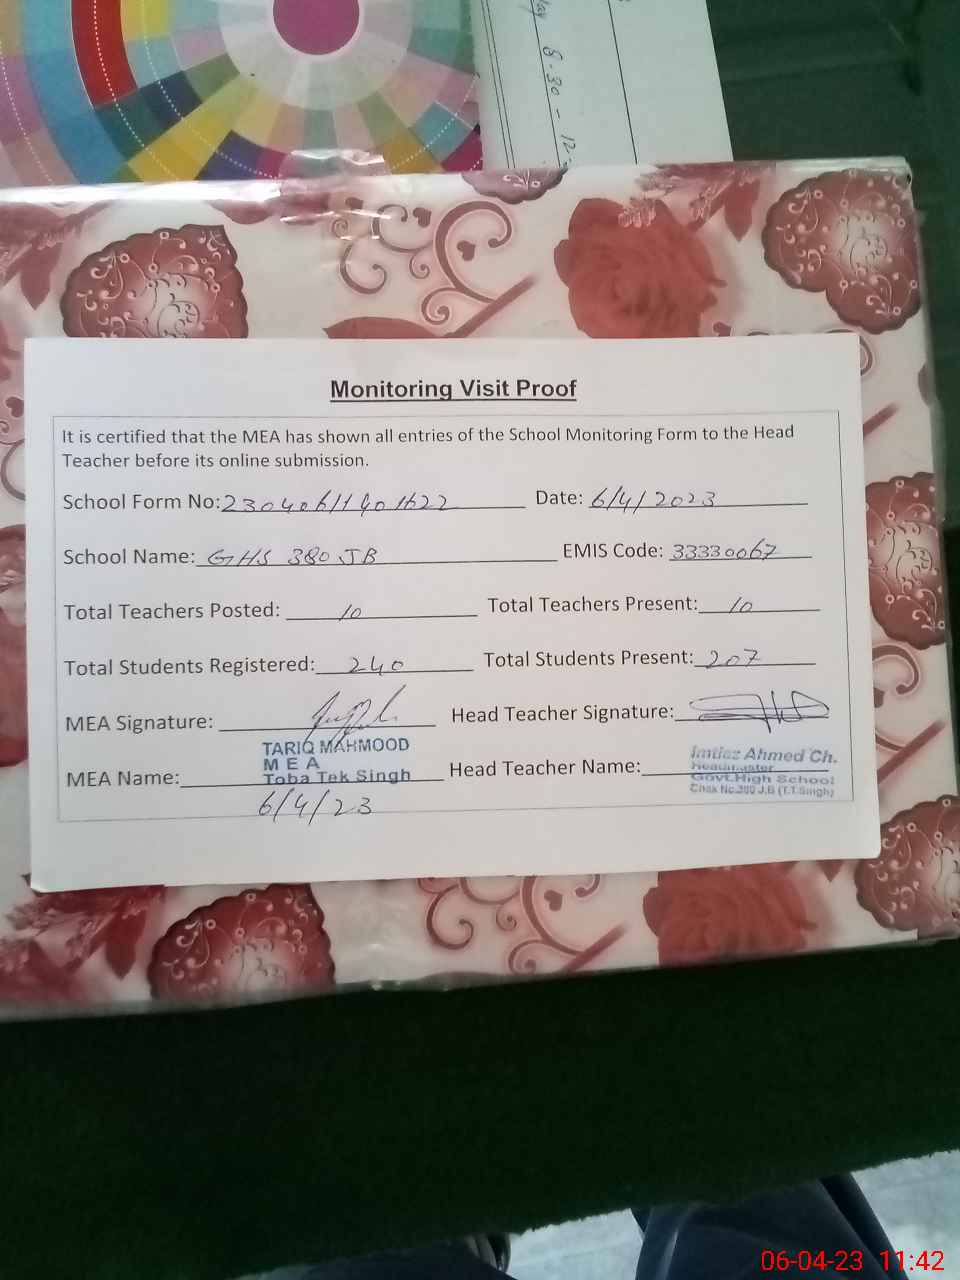 lay 8-30 - 12-
Monitoring Visit Proof
It is certified that the MEA has shown all entries of the School Monitoring Form to the Head
Teacher before its online submission.
School Form No: 23040611401622 Date: 6/4/2023
School Name: GHS 380 JB EMIS Code: 33330067
Total Teachers Posted: 10 Total Teachers Present: 10
Total Students Registered: 240 Total Students Present: 207
MEA Signature: Head Teacher Signature:
MEA Name: TARIQ MAHMOOD Head Teacher Name: Imtiaz Ahmed Ch.
M E A Headmaster
Toba Tek Singh Govt.High School
6/4/23 Chak No.380 J.B (T.T.Singh)
06-04-23 11:42